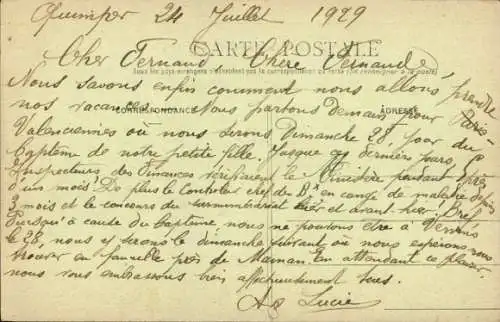 Quimper 24 Juillet 1929
CARTE POSTALE
Cher Fernand, Chère Fernande,
Tous les pays étrangers n'acceptent pas la correspondance au recto (Se renseigner à la poste)
Nous savons enfin comment nous allons prendre
nos vacances. Nous partons demain pour Paris-
CORRESPONDANCE
ADRESSE
Valenciennes où nous serons Dimanche 28, jour du
baptême de notre petite fille. Jusque ces derniers jours,
Inspecteurs des Finances vérifiaient le pendant près
d'un mois. De plus le contrôleur chef de en congé de maladie depuis
3 mois et le concours du surnumérariat hier et avant-hier. Bref
Puisqu'à cause du baptême nous ne pouvons être à
le 28, nous y serons le dimanche suivant où nous espérons vous
trouver en famille près de Maman. En attendant ce plaisir,
nous vous embrassons bien affectueusement tous.
Lucie